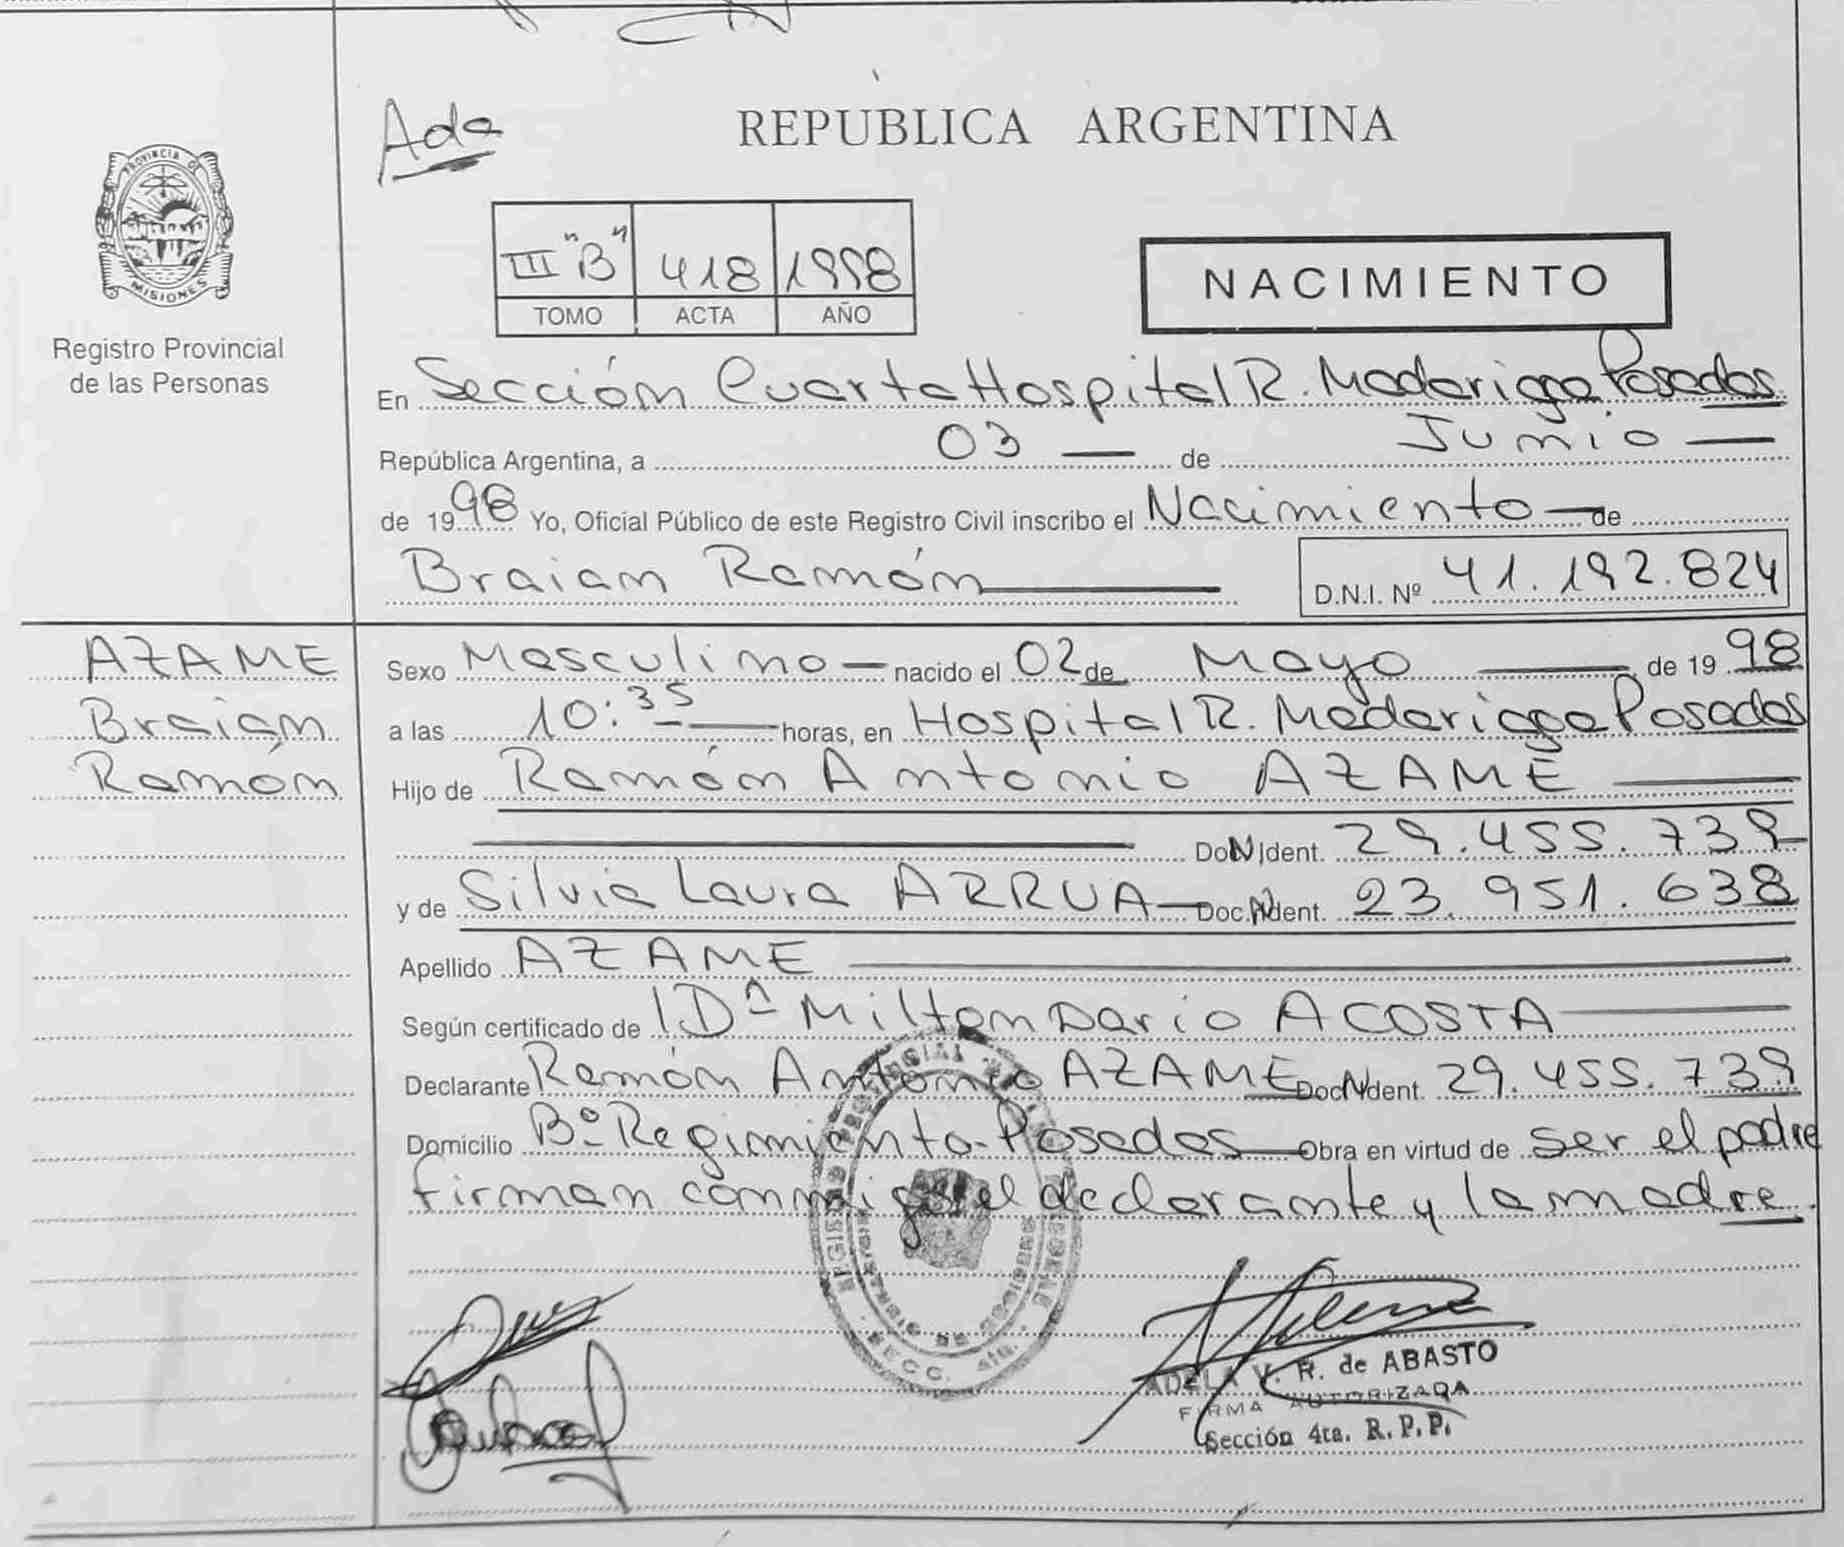 Ada
REPUBLICA ARGENTINA
PROVINCIA DE
MISIONES
Registro Provincial
de las Personas
III "B" 418 1998
TOMO ACTA AÑO
NACIMIENTO
En Sección Cuarta Hospital R. Madariaga Posadas
República Argentina, a 03 — de Junio —
de 1998 Yo, Oficial Público de este Registro Civil inscribo el Nacimiento — de
Braian Ramón —
D.N.I. Nº 41.192.824
AZAME
Braian
Ramón
Sexo Masculino — nacido el 02 de Mayo — de 1998
a las 10:35 — horas, en Hospital R. Madariaga Posadas
Hijo de Ramón Antonio AZAME —
— Doc. N Ident. 29.455.739
y de Silvia Laura ARRUA — Doc. N Ident. 23.951.638
Apellido AZAME —
Según certificado de Milton Dario ACOSTA —
Declarante Ramón Antonio AZAME Doc. N Ident. 29.455.739
Domicilio Bº Regimiento - Posadas — Obra en virtud de ser el padre
firman conmigo el declarante y la madre.
SECC. 4ta.
ADELA V. R. de ABASTO
FIRMA AUTORIZADA
Sección 4ta. R.P.P.